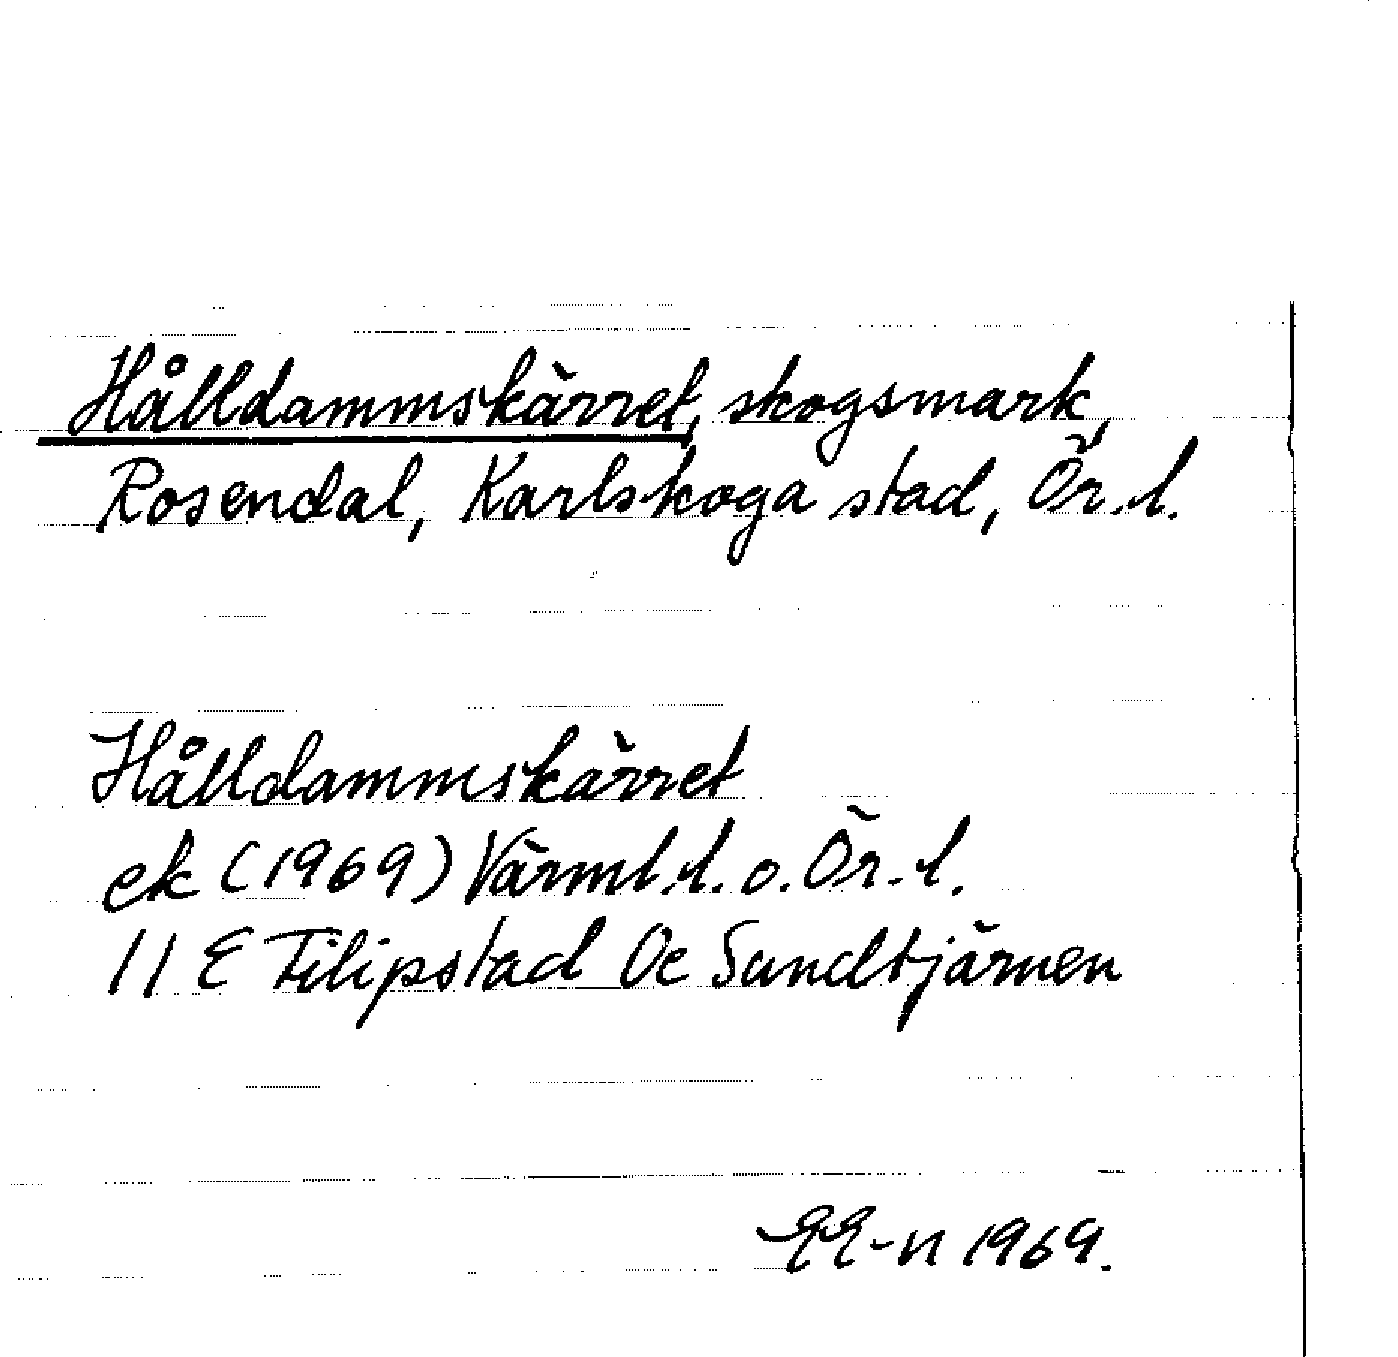 Hålldammskärret, skogsmark,
Rosendal, Karlskoga stad, Ör. l.
Hålldammskärret
ek (1969) Värml. l. o. Ör. l.
11 E Filipstad 0e Sundtjärnen
1969.